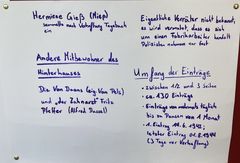 Hermiene Gieß (Miep)
sammelte nach Verhaftung Tagebuch
ein
Andere Mitbewohner des
Hinterhauses
Die Van Daans (eig. Van Pels)
und der Zahnarzt Fritz
Pfeffer (Alfred Dussel)
Eigentliche Verräter nicht bekannt,
es wird vermutet, dass es sich
um einen Fabrikarbeiter handelt
Umfang der Einträge
- zwischen 1/2 und 3 Seiten
- ca. 130 Einträge
- Einträge von mehrmals täglich
bis zu Pausen von 1 Monat
- 1. Eintrag
letzter Eintrag 01.8.1944
(3 Tage vor Verhaftung)